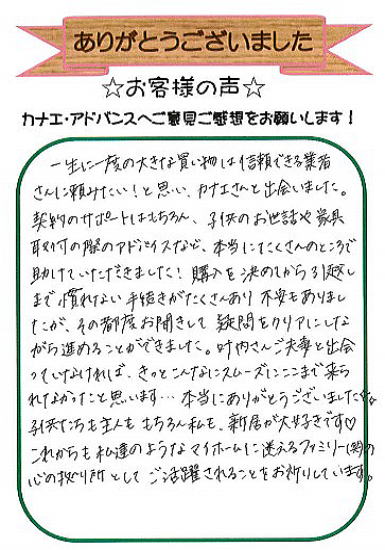 ありがとうございました
☆お客様の声☆
カナエ・アドバンスへご意見ご感想をお願いします!
一生に一度の大きな買い物は信頼できる業者
さんに頼みたい!と思い、カナエさんと出会いました。
契約のサポートはもちろん、子供のお世話や家具
取付の際のアドバイスなど、本当にたくさんのところで
助けていただきました!購入を決めてから引越し
まで慣れない手続きがたくさんあり不安もありまし
たが、その都度お聞きして疑問をクリアにしな
がら進めることができました。叶内さんご夫妻と出会
っていなければ、きっとこんなにスムーズにここまで来ら
れなかったと思います…本当にありがとうございました。
子供たちも主人ももちろん私も、新居が大好きです♡
これからも私達のようなマイホームに迷えるファミリー(笑)の
心の拠り所としてご活躍されることをお祈りしています。